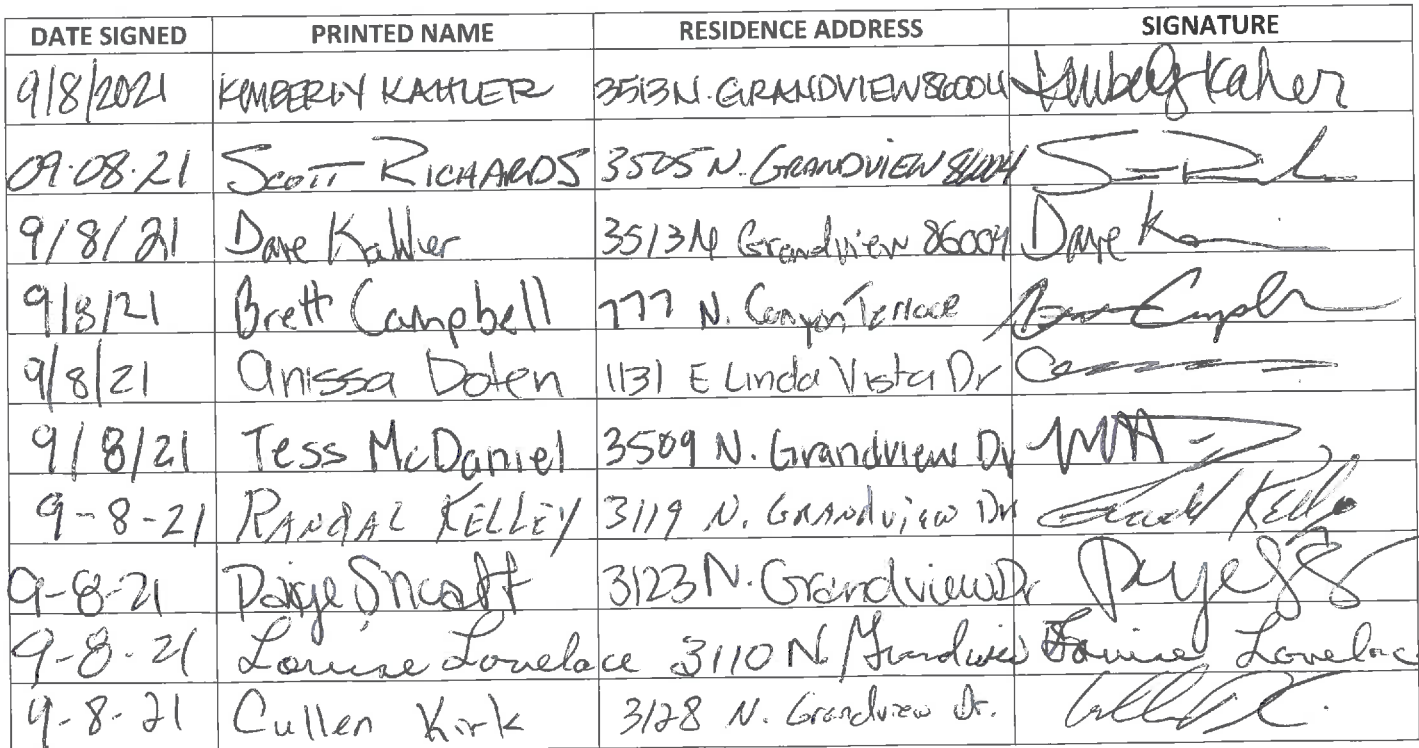 DATE SIGNED PRINTED NAME RESIDENCE ADDRESS SIGNATURE
9/8/2021 KIMBERLY KAHLER 3513 N. GRANDVIEW 86004 Kimberly Kahler
09.08.21 SCOTT RICHARDS 3505 N. GRANDVIEW 86004
9/8/21 Dave Kahler 3513 N Grandview 86004 Dave K
9/8/21 Brett Campbell 777 N. Canyon Terrace
9/8/21 Anissa Doten 1131 E Linda Vista Dr
9/8/21 Tess McDaniel 3509 N. Grandview Dr
9-8-21 RANDAL KELLEY 3119 N. GRANDview Dr
9-8-21 Paige 3123 N. Grandview Dr
9-8-21 Louise Lovelace 3110 N. Grandview Louise Lovelace
9-8-21 Cullen Kirk 3128 N. Grandview Dr.